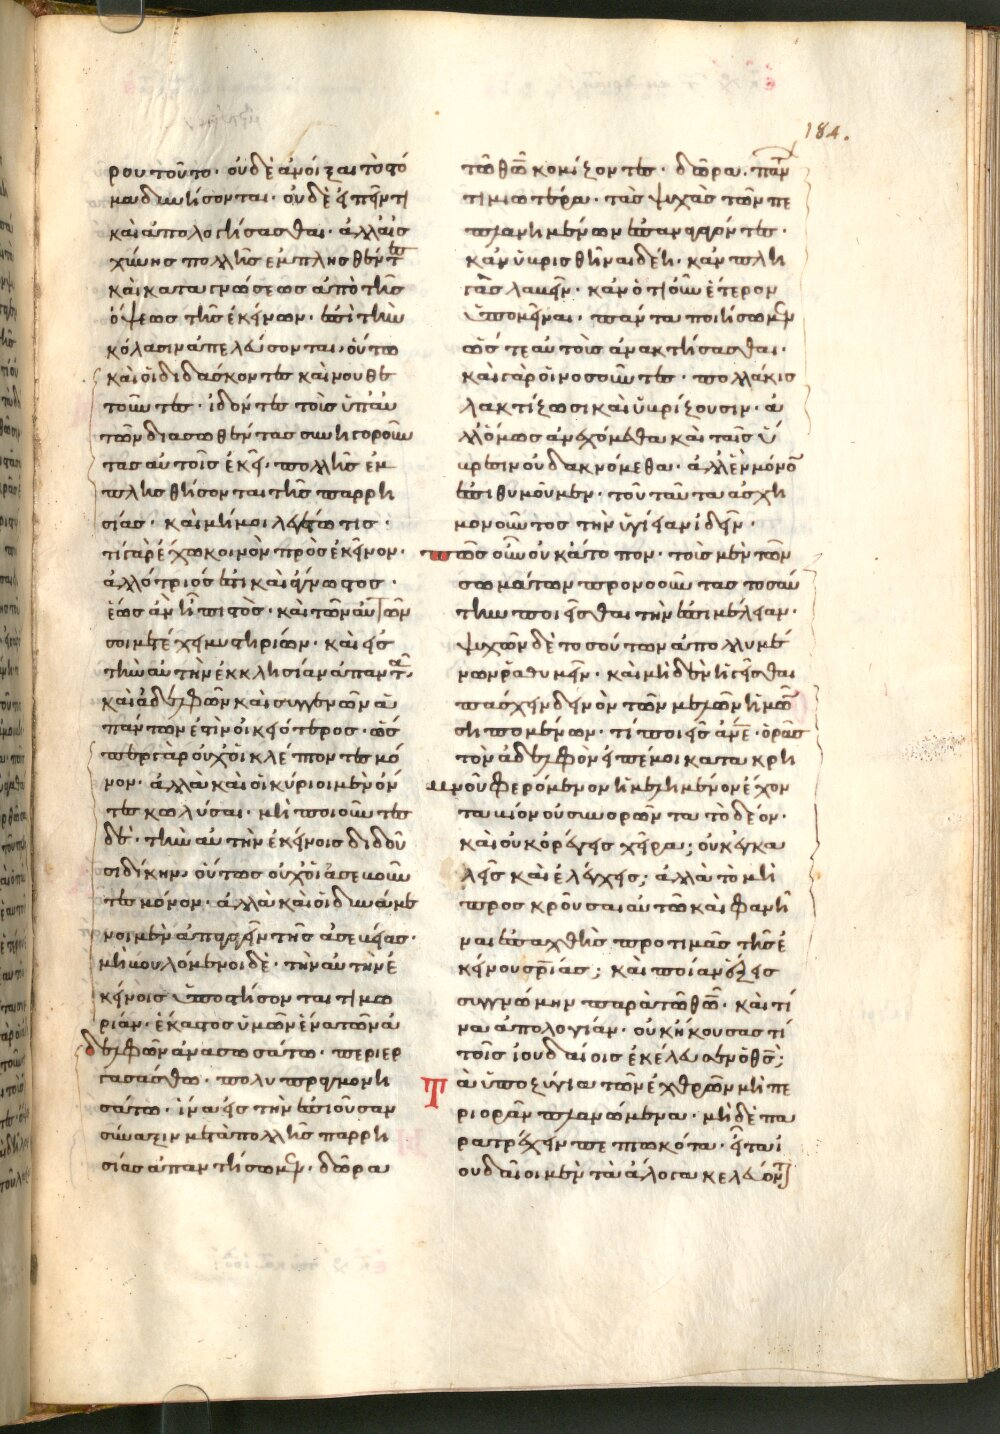 184.
ρου τοῦτο· οὐδὲ ἀνοῖξαι τὸ στό
μα δυνήσονται· οὐδὲ ἐπεῖν τι
καὶ ἀπολογήσασθαι· ἀλλ' αἰσ
χύνης πολλῆς ἐμπλησθέντες
καὶ καταγνώσεως ἀπὸ τῆς
ὄψεως τῆς ἐκείνων· ἐπὶ τὴν
κόλασιν ἀπελεύσονται· οὕτω
καὶ οἱ διδάσκοντες καὶ νουθε
τοῦντες· ἰδόντες τοὺς ὑπ' αὐ
τῶν διασωθέντας συνηγοροῦν
τας αὐτοῖς ἐκεῖ· πολλῆς ἐμ
πλησθήσονται τῆς παρρη
σίας· καὶ μή μοι λεγέτω τις·
τί γὰρ ἔχω κοινὸν πρὸς ἐκεῖνον·
ἀλλότριός ἐστι καὶ ἄγνωστος·
ἕως ἂν ᾖ πιστὸς· καὶ τῶν αὐτῶν
σοι μετέχει μυστηρίων· καὶ εἰς
τὴν αὐτὴν ἐκκλησίαν ἀπαντᾷ,
καὶ ἀδελφῶν καὶ συγγενῶν ἁ
πάντων ἐστὶν οἰκειότερος· ὥσ
περ γὰρ οὐχ οἱ κλέπτοντες μό
νον· ἀλλὰ καὶ οἱ κύριοι μὲν ὄν
τες κωλύσαι· μὴ ποιοῦντες
δὲ· τὴν αὐτὴν ἐκείνοις διδοῦ
σι δίκην· οὕτως οὐχ οἱ ἀσεβοῦν
τες μόνον· ἀλλὰ καὶ οἱ δυνάμε
νοι μὲν ἀπάγειν τῆς ἀσεβείας·
μὴ βουλόμενοι δὲ· τὴν αὐτὴν ἐ
κείνοις ὑποστήσονται τιμω
ρίαν· ἕκαστος ὑμῶν ἕνα τῶν ἀ
δελφῶν ἀνασωσάτω· περιερ
γασάσθω· πολυπραγμονη
σάτω· ἵνα εἰς τὴν ἐπιοῦσαν
σύναξιν μετὰ πολλῆς παρρη
σίας ἀπαντήσωμεν· δῶρα
τῷ θεῷ κομίζοντες· δῶρα πάντων
τιμιώτερα· τὰς ψυχὰς τῶν πε
πλανημένων ἐπανάγοντες·
κἂν ὑβρισθῆναι δέῃ· κἂν πλη
γὰς λαβεῖν· κἂν ὁτιοῦν ἕτερον
ὑπομεῖναι· πάντα ποιήσωμεν
ὥστε αὐτοὺς ἀνακτήσασθαι·
καὶ γὰρ οἱ νοσοῦντες· πολλάκις
λακτίζωσι καὶ ὑβρίζουσιν· ἀ
λλ' ὅμως ἀνεχόμεθα καὶ ταῖς ὕ
βρεσιν οὐ δακνόμεθα· ἀλλ' ἓν μόνον
ἐπιθυμοῦμεν· τοῦ ταῦτα ἀσχη
μονοῦντος τὴν ὑγίειαν ἰδεῖν·
πῶς οὖν οὐκ ἄτοπον· τοῖς μὲν τῶν
σωμάτων προνοοῦντας τοσαύ
την ποιεῖσθαι τὴν ἐπιμέλειαν·
ψυχῶν δὲ τοσούτων ἀπολλυμέ
νων ῥαθυμεῖν· καὶ μηδὲν ἡγεῖσθαι
πάσχειν δεινὸν τῶν μελῶν ἡμῶν
σηπομένων· τί ποιεῖς ἄνθρωπε· ὁρᾷς
τὸν ἀδελφὸν εἰπέ μοι κατὰ κρη
μνοῦ φερόμενον ἠμελημένον ἔχον
τα βίον οὐ συνορῶντα τὸ δέον·
καὶ οὐκ ὀρέγεις χεῖρα; οὐκ ἐγκα
λεῖς καὶ ἐλέγχεις; ἀλλὰ τὸ μὴ
προσκροῦσαι αὐτῷ καὶ φανῆ
ναι ἐπαχθὴς προτιμᾷς τῆς ἐ
κείνου σωτηρίας; καὶ ποίαν ἕξεις
συγγνώμην παρὰ τῷ θεῷ· καὶ τί
να ἀπολογίαν· οὐκ ἤκουσας τί
τοῖς ἰουδαίοις ἐκέλευσεν ὁ θεός;
Τὰ ὑποζύγια τῶν ἐχθρῶν μὴ πε
ριορᾶν πλανώμενα· μηδὲ πα
ρατρέχειν πεπτωκότα· εἶτα ἰ
ουδαῖοι μὲν τὰ ἄλογα κελεύονται